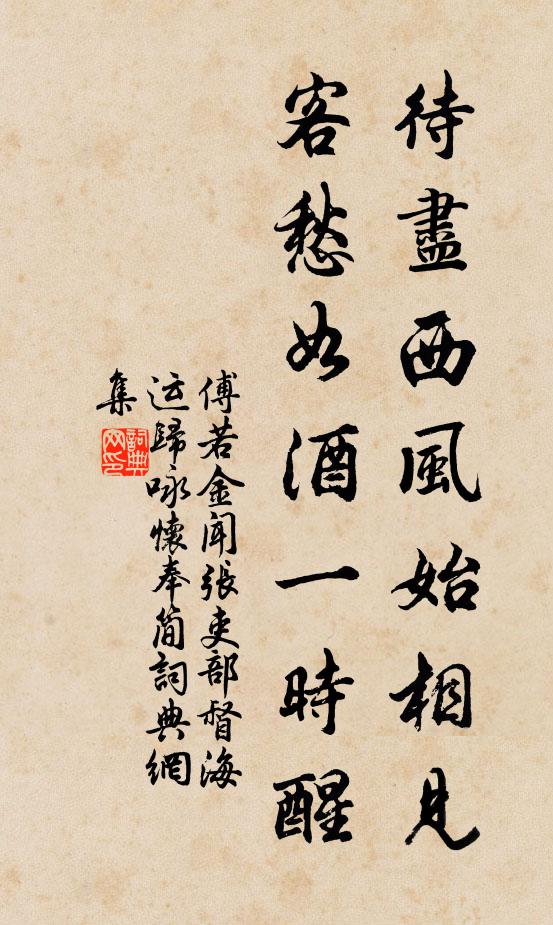 待盡西風始相見
客愁如酒一時醒
傅若金聞張吏部督海
运歸咏懷奉简詞典網
集
詞典網印